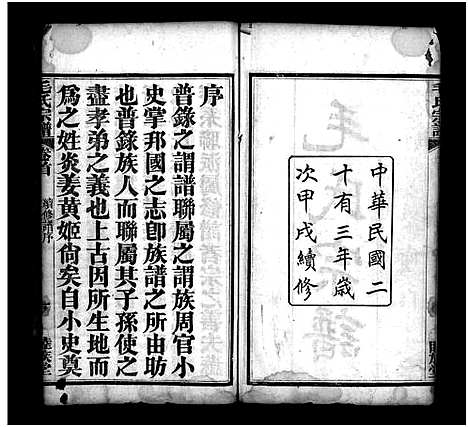 中華民國二
十有三年歲
次甲戌續修
毛氏宗譜
序
普錄之謂譜聯屬之謂族周官小
史掌邦國之志卽族譜之所由助
也普錄族人而聯屬其子孫使之
盡孝弟之義也上古因所生地而
爲之姓炎姜黃姬尙矣自小史奠
毛氏宗譜 卷首 續修譜序 睦族堂